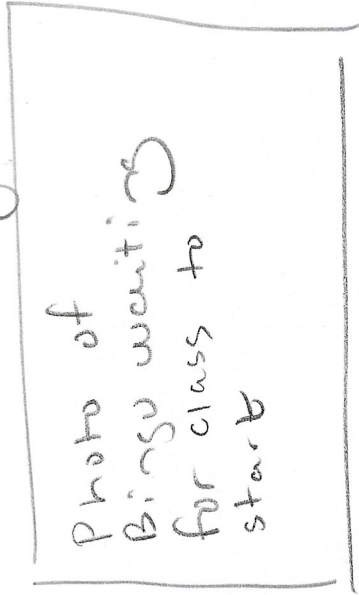 Photo of
Bingo waiting
for class to
start